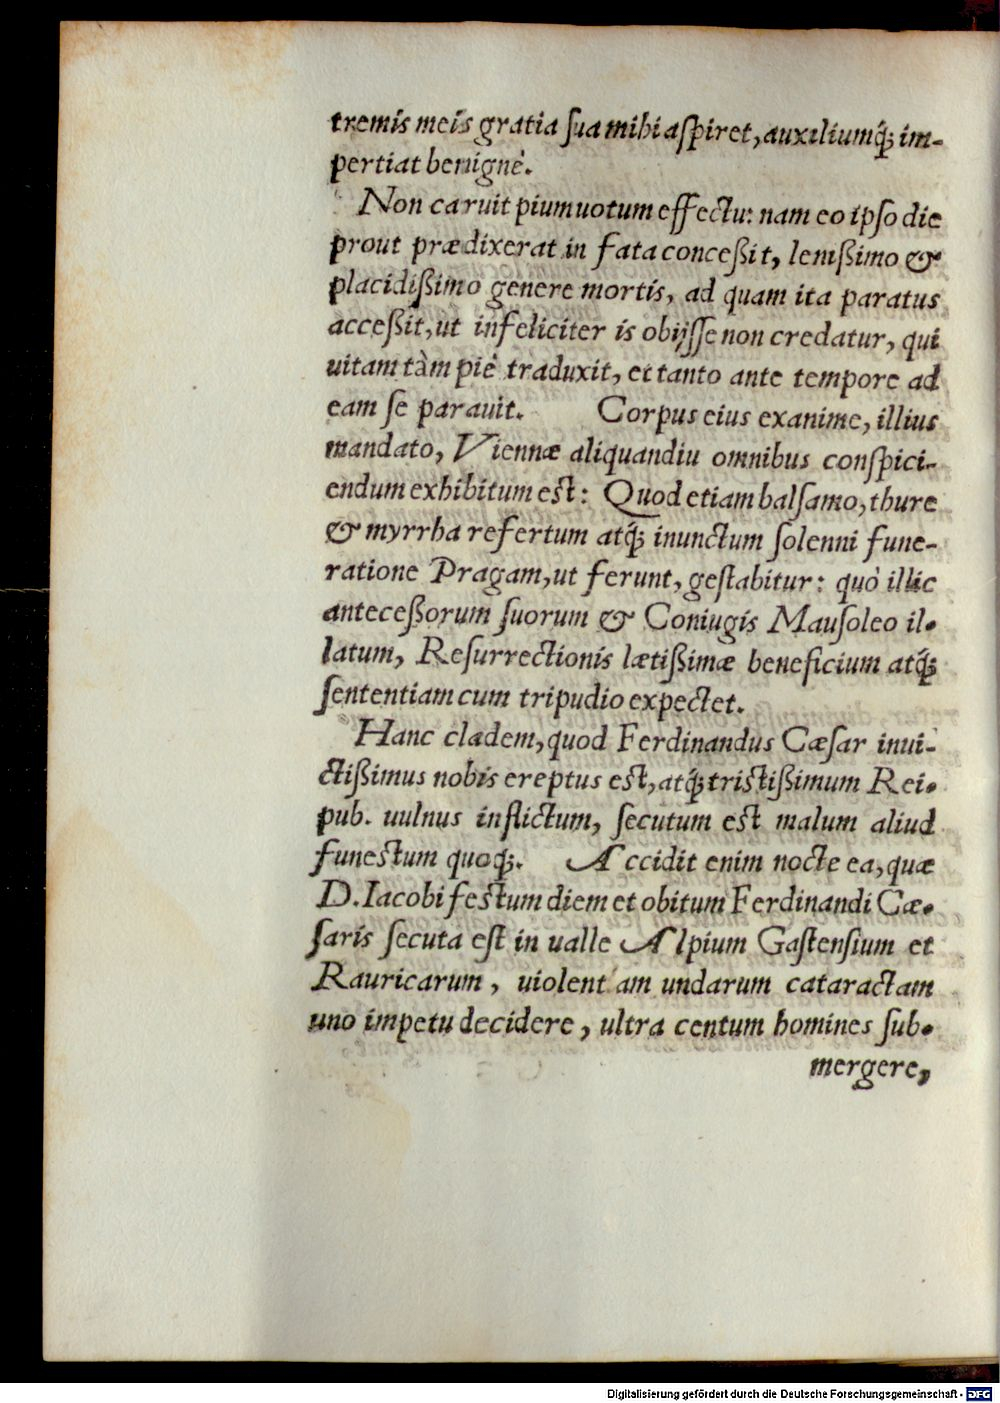 tremis meis gratia sua mihi aspiret, auxiliumq́; im-
pertiat benignè.
Non caruit pium uotum effectu: nam eo ipso die
prout prædixerat in fata conceßit, lenißimo &
placidißimo genere mortis, ad quam ita paratus
acceßit, ut infeliciter is obijsse non credatur, qui
uitam tàm piè traduxit, et tanto ante tempore ad
eam se parauit. Corpus eius exanime, illius
mandato, Viennæ aliquandiu omnibus conspici-
endum exhibitum est: Quod etiam balsamo, thure
& myrrha refertum atq́; inunctum solenni fune-
ratione Pragam, ut ferunt, gestabitur: quò illic
anteceßorum suorum & Coniugis Mausoleo il-
latum, Resurrectionis lætißimæ beneficium atq́;
sententiam cum tripudio expectet.
Hanc cladem, quod Ferdinandus Cæsar inui-
ctißimus nobis ereptus est, atq́; tristißimum Rei-
pub. uulnus inflictum, secutum est malum aliud
funestum quoq́;. Accidit enim nocte ea, quæ
D. Iacobi festum diem et obitum Ferdinandi Cæ-
saris secuta est in ualle Alpium Gastensium et
Rauricarum, uiolentam undarum cataractam
uno impetu decidere, ultra centum homines sub-
mergere,
Digitalisierung gefördert durch die Deutsche Forschungsgemeinschaft - DFG